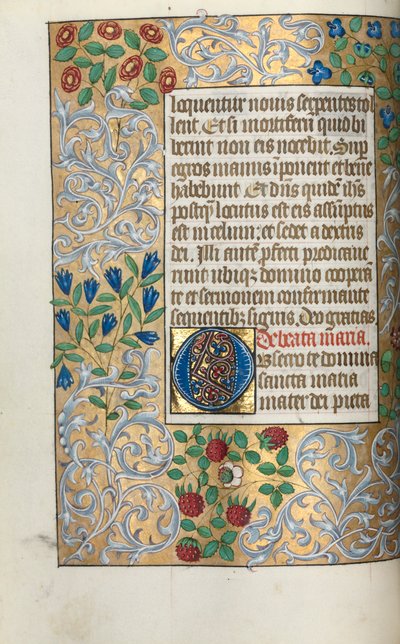 loquentur nouis serpentes tol
lent. Et si mortiferu quid bi
berint non eis nocebit. Sup
egros manus iponent et bene
habebunt. Et dns quide ihs
postq locutus est eis assuptus
est in celum: et sedet a dextris
dei. Illi aute pfecti predicaue
runt ubiq domino coopera
te et sermonem confirmante
sequentibz signis. Deo gratias
De beata maria.
Obsecro te domina
sancta maria
mater dei pieta